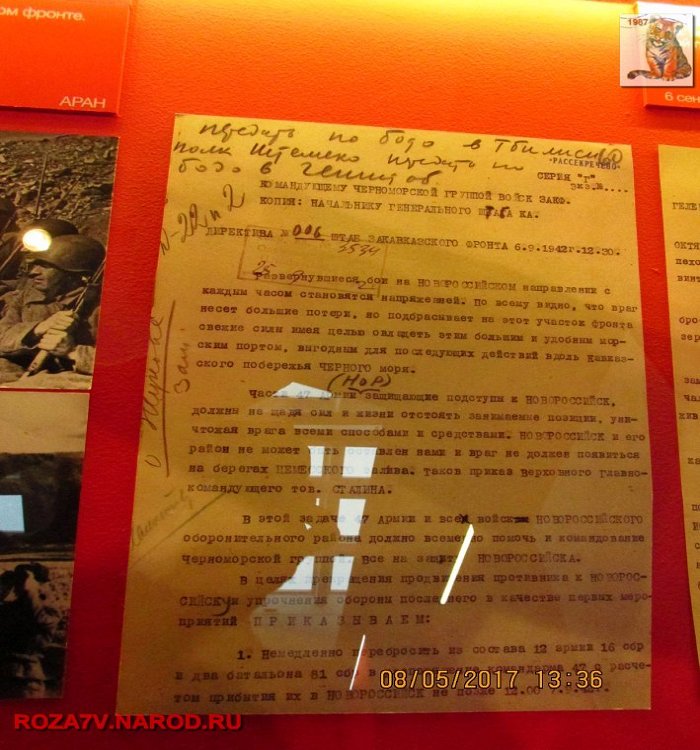 ом фронте.
АРАН
1987
6 сен
передать по бодо в Тбилиси
полк Штеменко передать по
бодо в
"РАССЕКРЕЧЕНО"
СЕРИЯ "Г"
экз.№....
КОМАНДУЮЩЕМУ ЧЕРНОМОРСКОЙ ГРУППОЙ ВОЙСК ЗАКФ.
КОПИЯ: НАЧАЛЬНИКУ ГЕНЕРАЛЬНОГО ШТАБА КА.
ДИРЕКТИВА №006 ШТАБ ЗАКАВКАЗСКОГО ФРОНТА 6.9.1942г.12.30.
Развернувшиеся бои на НОВОРОССИЙСКОМ направлении с
каждым часом становятся напряженней. По всему видно, что враг
несет большие потери, но подбрасывает на этот участок фронта
свежие силы имея целью овладеть этим большим и удобным мор-
ским портом, выгодным для последующих действий вдоль Кавказ-
ского побережья ЧЕРНОГО моря.
(НОР)
Части 47 Армии защищающие подступы к НОВОРОССИЙСК,
должны не щадя сил и жизни отстоять занимаемые позиции, уни-
чтожая врага всеми способами и средствами. НОВОРОССИЙСК и его
район не может быть оставлен нами и враг не должен появиться
на берегах ЦЕМЕССКОГО залива. Таков приказ Верховного Главно-
командующего тов. СТАЛИНА.
В этой задаче 47 Армии и всех войск НОВОРОССИЙСКОГО
оборонительного района должно всемерно помочь и командование
Черноморской группой. Все на защиту НОВОРОССИЙСКА.
В целях прекращения продвижения противника к НОВОРОС-
СИЙСКУ и упрочнения обороны последнего в качестве первых меро-
приятий ПРИКАЗЫВАЕМ:
1. Немедленно перебросить из состава 12 армии 16 сбр
и два батальона 81 сбр в распоряжение командарма 47 с расче-
том прибытия их в НОВОРОССИЙСК не позже 12.00 7.9.42г.
ГЕЛЕ
ОКТЯ
пехо
винт
бро
зер
08/05/2017 13:36
ROZA7V.NAROD.RU